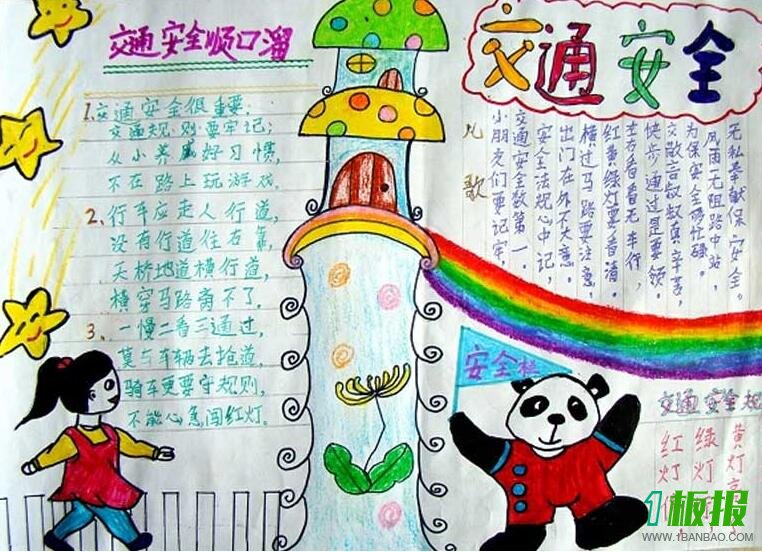 交通安全顺口溜
1、交通安全很重要,
交通规则要牢记;
从小养成好习惯,
不在路上玩游戏。
2、行车应走人行道,
没有行道往右靠,
天桥地道横行道,
横穿马路离不了。
3、一慢二看三通过,
莫与车辆去抢道,
骑车更要守规则,
不能心急闯红灯。
交通安全
儿歌
小朋友们要记牢,
交通安全数第一。
安全法规心中记,
出门在外不大意。
横过马路要注意,
红黄绿灯要看清。
左看右看无车行,
快步通过是要领。
交敬言叔叔真辛苦,
为保安全的忙碌。
风雨无阻路中站,
无私奉献保安全。
安全
交通安全规
红灯
绿灯
黄灯亮
1板报
WWW.1BANBAO.COM